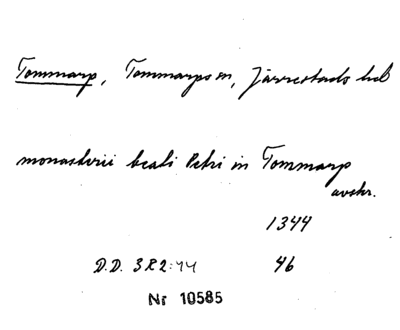 Tommarp, Tommarps sn, Järrestads hd
monasterii beati Petri in Tommarp
avskr.
1344
D.D. 3R2:44 46
Nr 10585